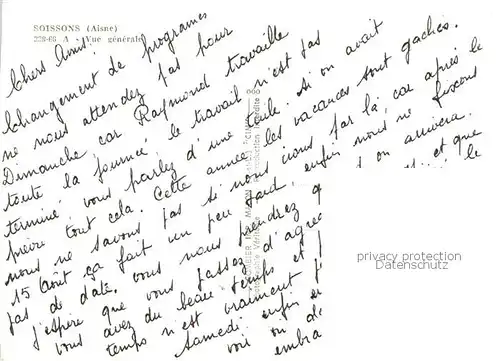 SOISSONS (Aisne)
228-66 A - Vue générale
Chers Amis.
Changement de programes
ne nous attendez pas pour
Dimanche car Raymond travaille
toute la journée, le travail n'est pas
terminé, vous parlez d'une tuile. Si on avait
prévu tout cela. Cette année les vacances sont gachés.
nous ne savons pas si nous irons par là, car après le
15 Août ça fait un peu tard, enfin nous ne fixons
pas de date. vous nous prendrez q
on arrivera.
J'espère que vous passez d'agréa
et que
vous avez du beau temps et
le
temps n'est vraiment p
Samedi enfin
voir on d
embra
privacy protection
Datenschutz